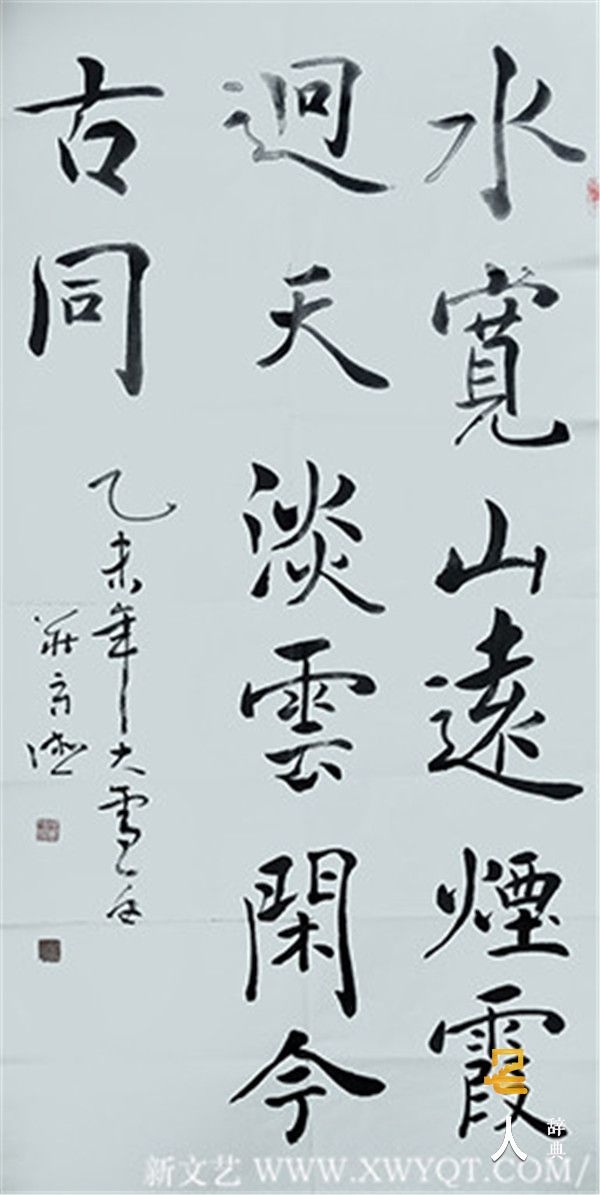 水寬山遠煙霞
迥天淡雲閑今
古同
乙未年大雪
名人
辞典
新文艺 WWW.XWYQT.COM/